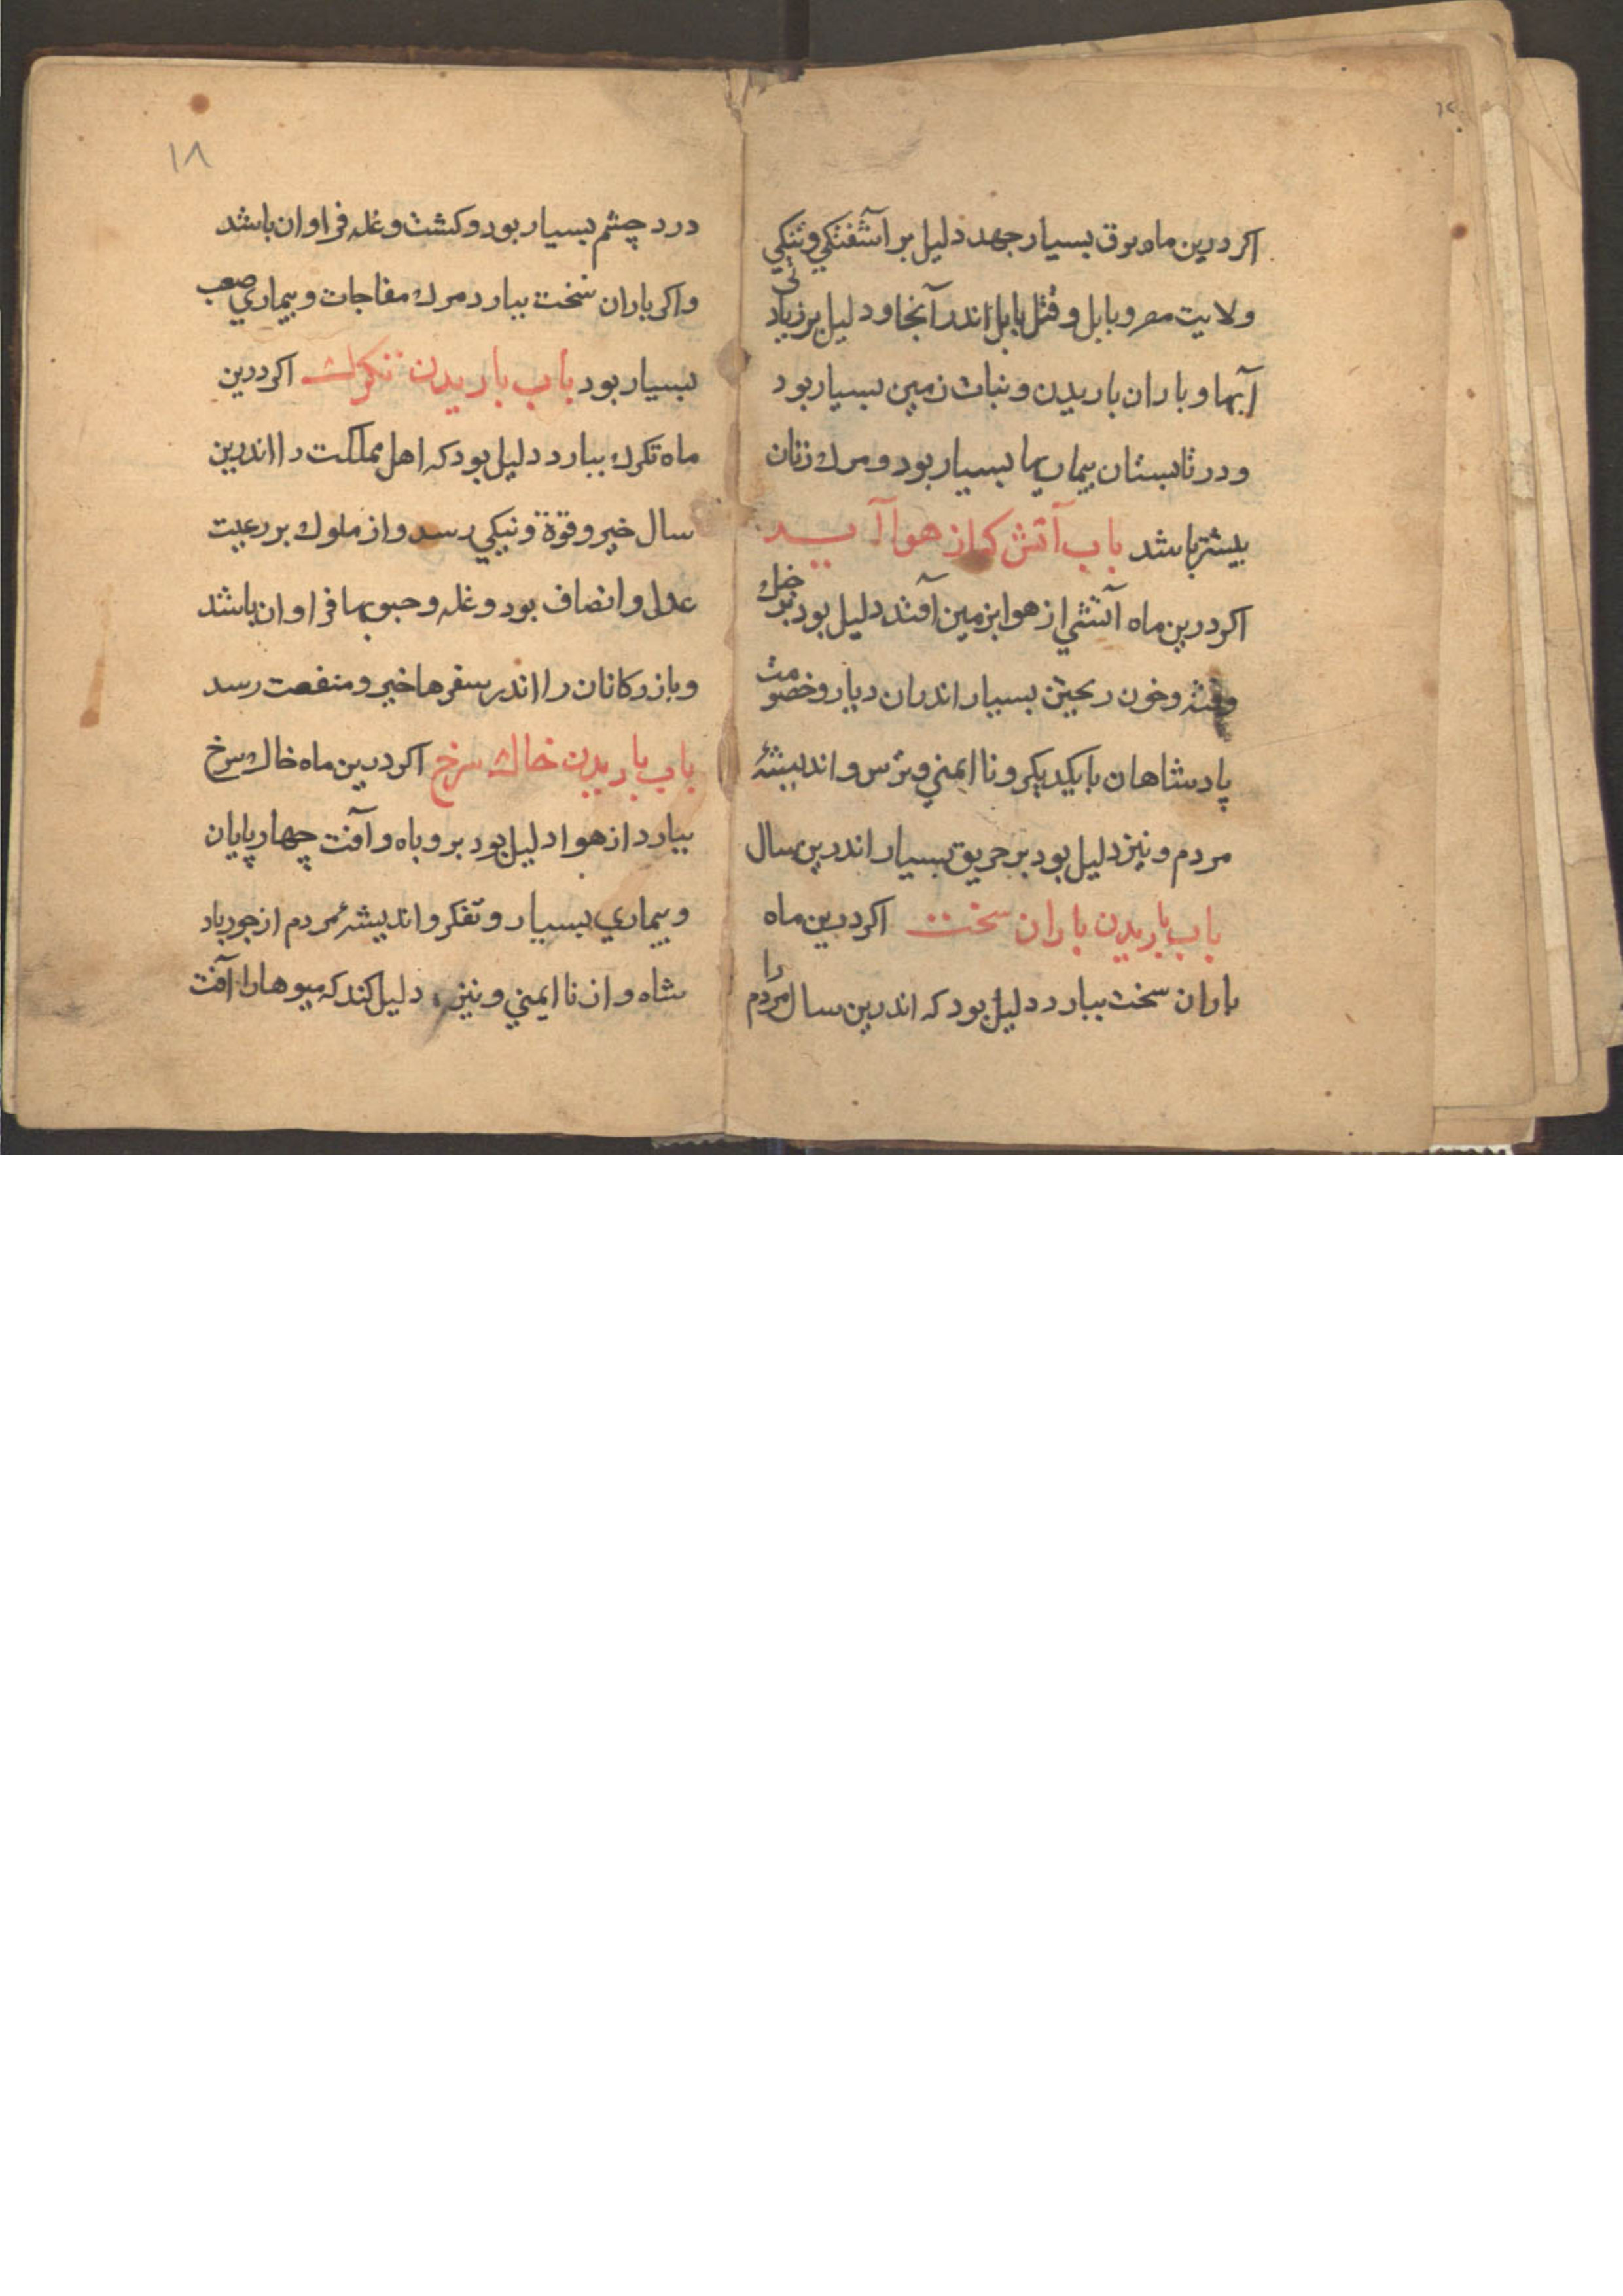 اکر درین ماه برق بسیار جهد دلیل بر آشفتکي وتنکي
ولایت مصر و بابل و قتل بابل اندر آنجا و دلیل بر زیادتی
آبها و باران باریدن و نبات زمین بسیار بود
و در تابستان بیماریها بسیار بود و مرك زنان
بیشتر باشد باب آتش که از هوا آید
اکر درین ماه آتشي از هوا بزمین آفتد دلیل بود بر خشك
وفتنه و خون ریختن بسیار اندران دیار و خصومت
پادشاهان با یکدیکر و نا ایمني و ترس و اندیشهٔ
مردم و نیز دلیل بود بر حریق بسیار اندرین سال
باب باریدن باران سخت اکر درین ماه
باران سخت ببارد دلیل بود که اندرین سال مردم را
۱۸
درد چشم بسیار بود و کشت و غله فراوان باشد
واکر باران سخت ببارد مرك مفاجات و بیماري صعب
بسیار بود باب باریدن تکرك اکر درین
ماه تکرك ببارد دلیل بود که اهل مملکت را اندرین
سال خیر و قوة و نیکي رسد و از ملوك بر رعیت
عدل و انصاف بود و غله و حبوبها فراوان باشد
و بازرکانان را اندر سفرها خیر و منفعت رسد
باب باریدن خاك سرخ اکر درین ماه خاك سرخ
ببارد از هوا دلیل بود بر وباه و آفت چهارپایان
و بیماري بسیار و تفکر و اندیشهٔ مردم از جور پاد
شاه و از نا ایمني و نیز دلیل کند که میوها را آفت